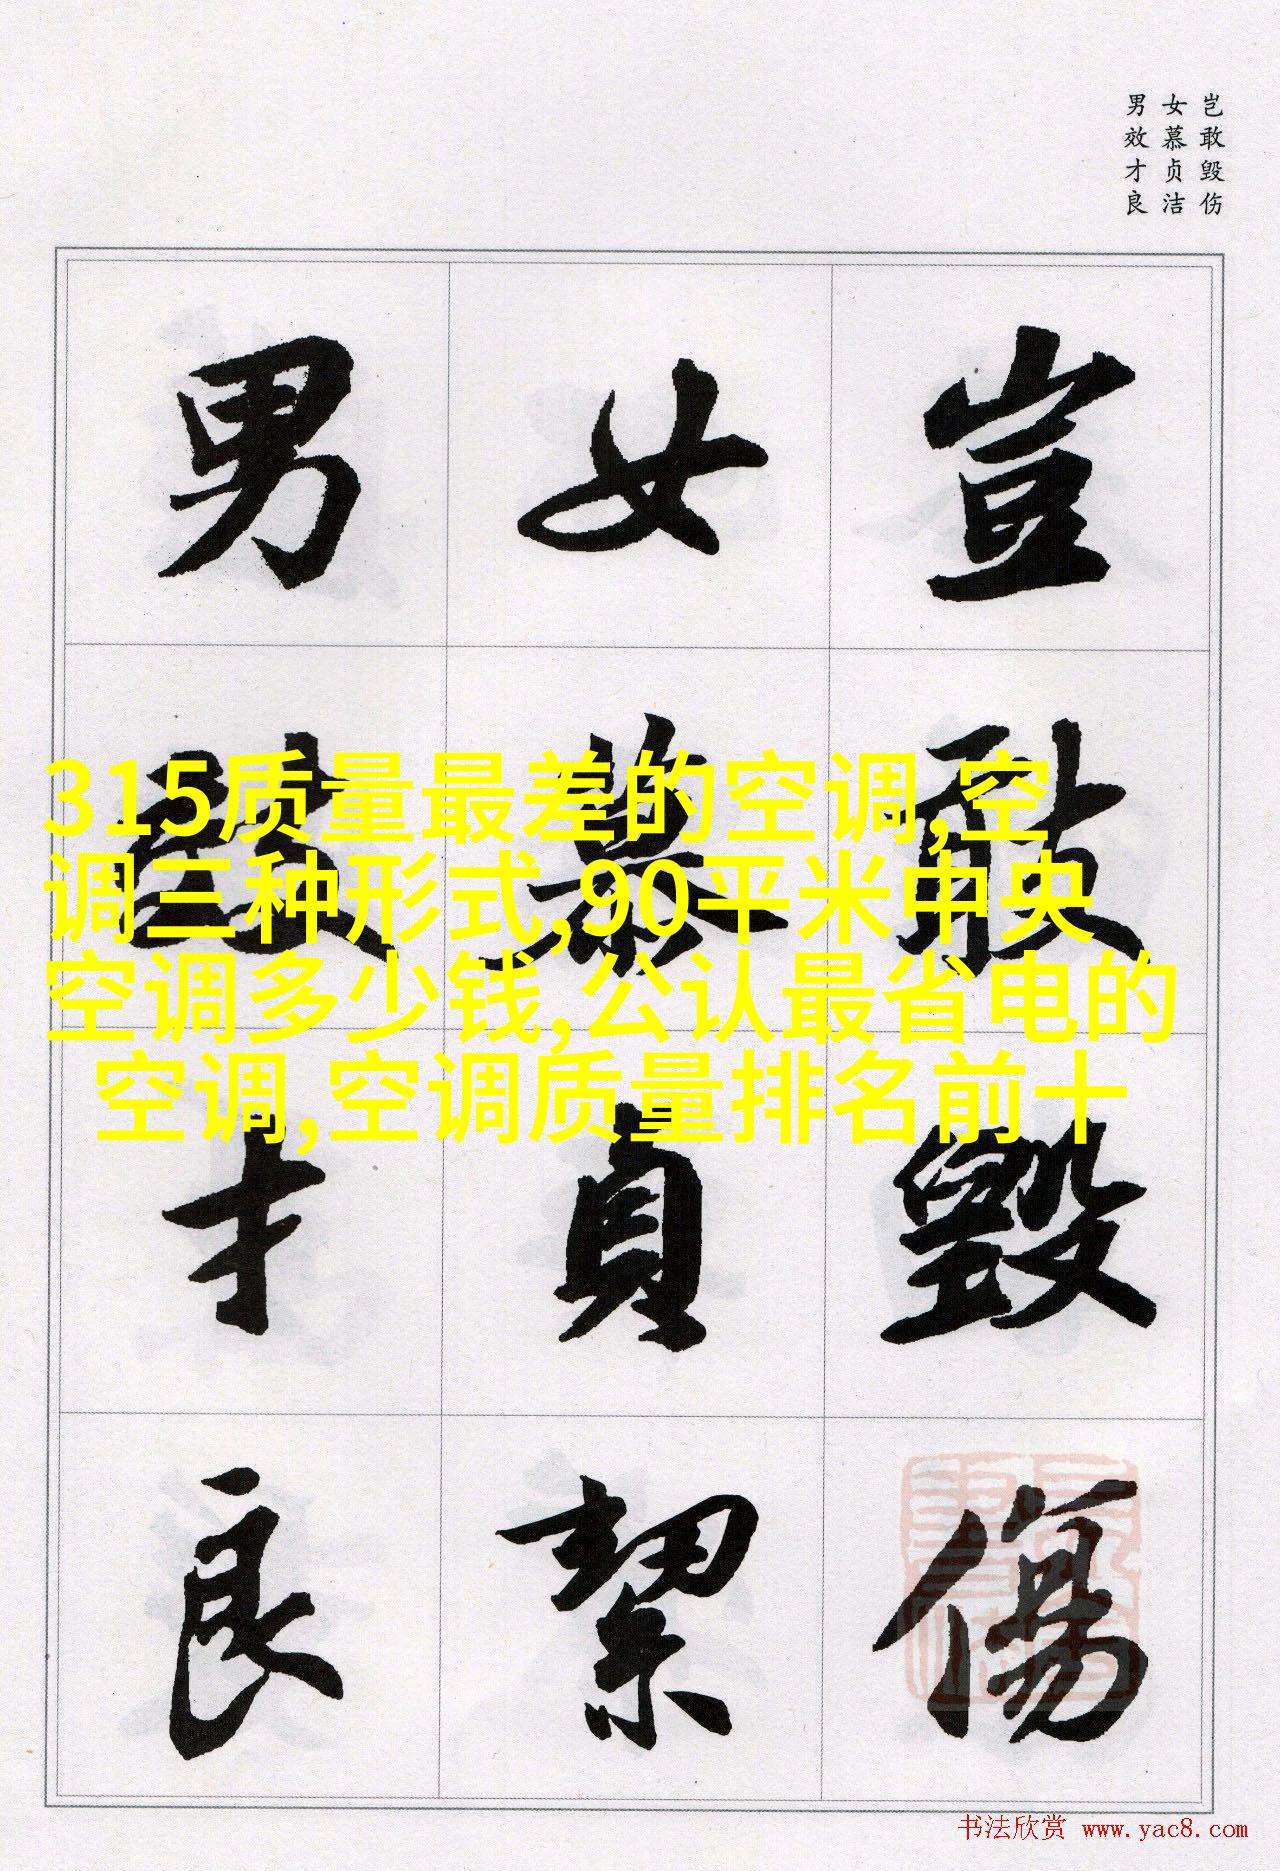 岂敢毁伤
女慕贞洁
男效才良
豈敢毀傷
女慕貞絜
男效才良
315质量最差的空调,空
调三种形式,90平米中央
空调多少钱,公认最省电的
空调,空调质量排名前十
书法欣赏 www.yac8.com